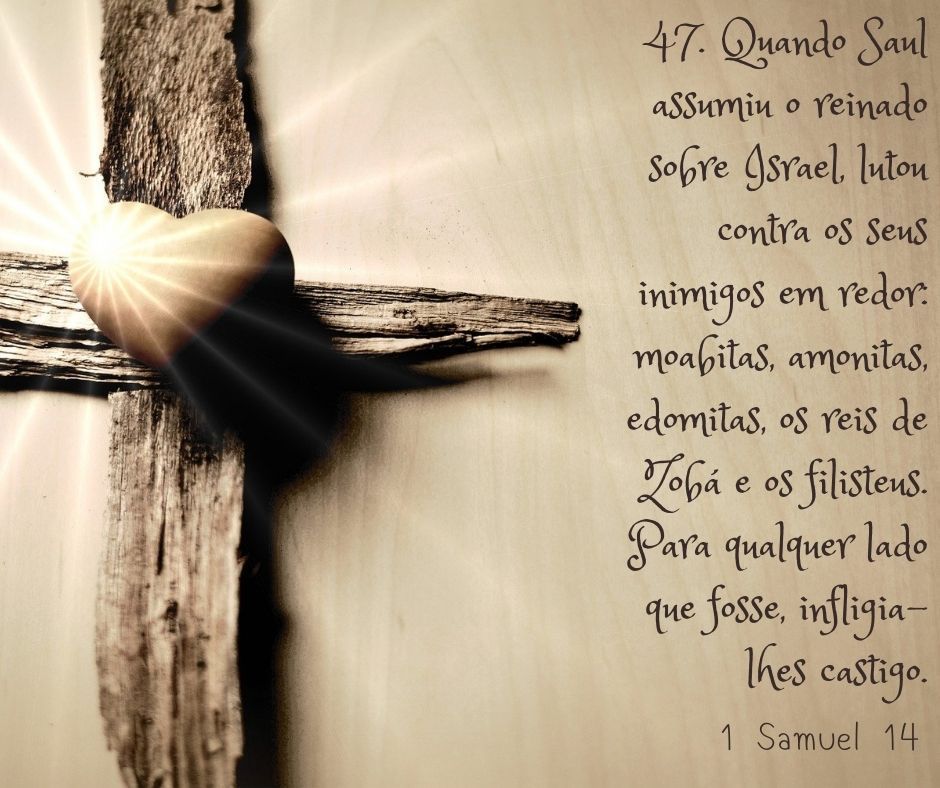 47. Quando Saul
assumiu o reinado
sobre Israel, lutou
contra os seus
inimigos em redor:
moabitas, amonitas,
edomitas, os reis de
Zobá e os filisteus.
Para qualquer lado
que fosse, infligia-
lhes castigo.
1 Samuel 14